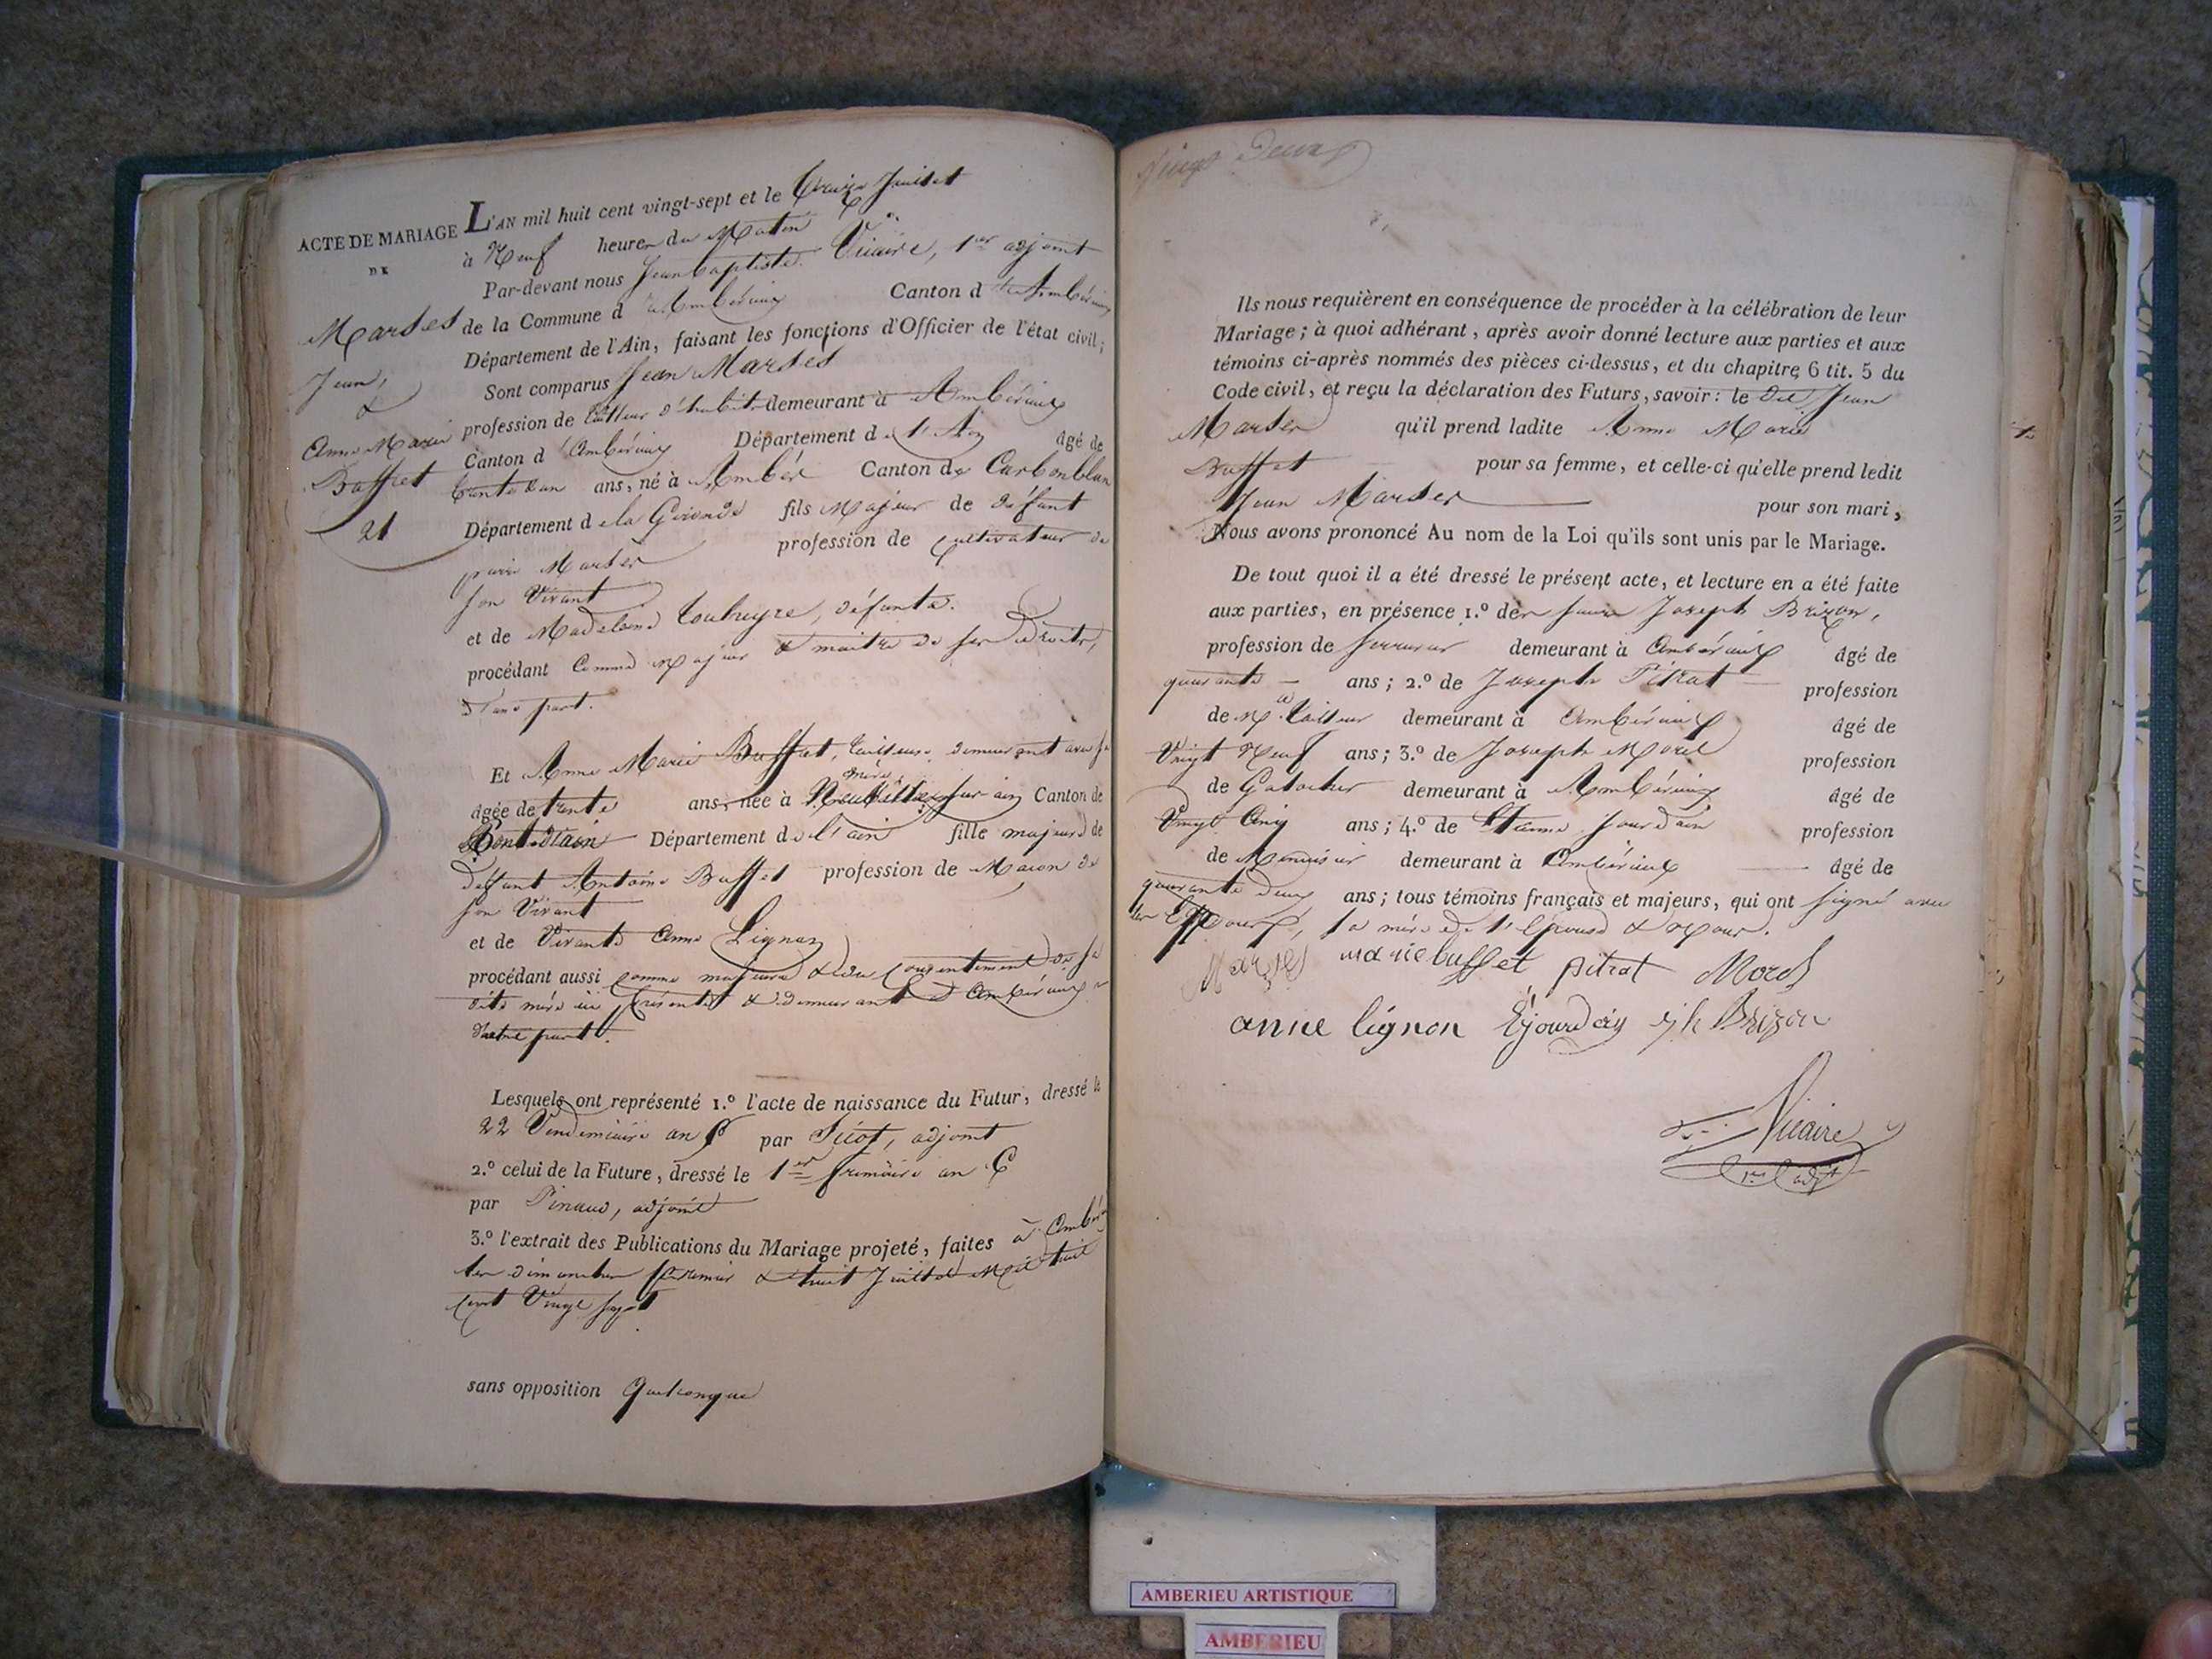 ACTE DE MARIAGE
DE
Marsès
Jean,
&
Anne Marie
Buffet
21
L'AN mil huit cent vingt-sept et le treize Juillet
à Neuf heures du Matin
Par-devant nous Jean baptiste Vicaire, 1er adjoint
de la Commune d'Ambérieux Canton d'Ambérieux
Département de l'Ain, faisant les fonctions d'Officier de l'état civil;
Sont comparus Jean Marsès
profession de tailleur d'habits demeurant à Ambérieux
Canton d'Ambérieux Département de l'Ain âgé de
trente un ans, né à Ambés Canton de Carbonblan
Département de la Gironde fils Majeur de défunt
profession de cultivateur de
Marses
son Vivant
et de Madelaine défunte.
procédant comme Majeur & maitre de ses droits,
d'une part.
Et Anne Marie Buffet, tailleuse, demeurant avec sa
mère,
âgée de trente ans, née à Neuville sur ain Canton de
Pont d'ain Département de l'ain fille majeure de
défunt Antoine Buffet profession de Maçon de
son Vivant
et de Vivante Anne Lignon
procédant aussi comme majeure & du consentement de sa
dite mère ici présente & demeurant à Ambérieux
d'autre part.
Lesquels ont représenté 1.º l'acte de naissance du Futur, dressé le
22 Vendemiaire an par adjoint
2.º celui de la Future, dressé le 1er frimaire an 6
par Pinaud, adjoint
3.º l'extrait des Publications du Mariage projeté, faites à Ambér
les dimanches premier & huit Juillet Mil huit
cent Vingt sept
sans opposition Quelconque
Vingt deux
Ils nous requièrent en conséquence de procéder à la célébration de leur
Mariage; à quoi adhérant, après avoir donné lecture aux parties et aux
témoins ci-après nommés des pièces ci-dessus, et du chapitre 6 tit. 5 du
Code civil, et reçu la déclaration des Futurs, savoir: le dit Jean
Marses qu'il prend ladite Anne Marie
Buffet pour sa femme, et celle-ci qu'elle prend ledit
Jean Marses pour son mari,
Nous avons prononcé Au nom de la Loi qu'ils sont unis par le Mariage.
De tout quoi il a été dressé le présent acte, et lecture en a été faite
aux parties, en présence 1.º des sieurs Joseph Brizon,
profession de serrurier demeurant à Ambérieux âgé de
quarante ans; 2.º de Joseph Pitrat profession
de Md tailleur demeurant à Ambérieux âgé de
Vingt Neuf ans; 3.º de Joseph Morel profession
de demeurant à Ambérieux âgé de
Vingt Cinq ans; 4.º de Etienne Jourdain profession
de Menuisier demeurant à Ambérieux âgé de
quarante deux ans; tous témoins français et majeurs, qui ont signé avec
les Epoux, la mère de l'épouse & Nous.
Marses marie buffet pitrat Morel
anne lignon Ejourdain jh Brizon
Vicaire
1er adjt
AMBERIEU ARTISTIQUE
AMBERIEU